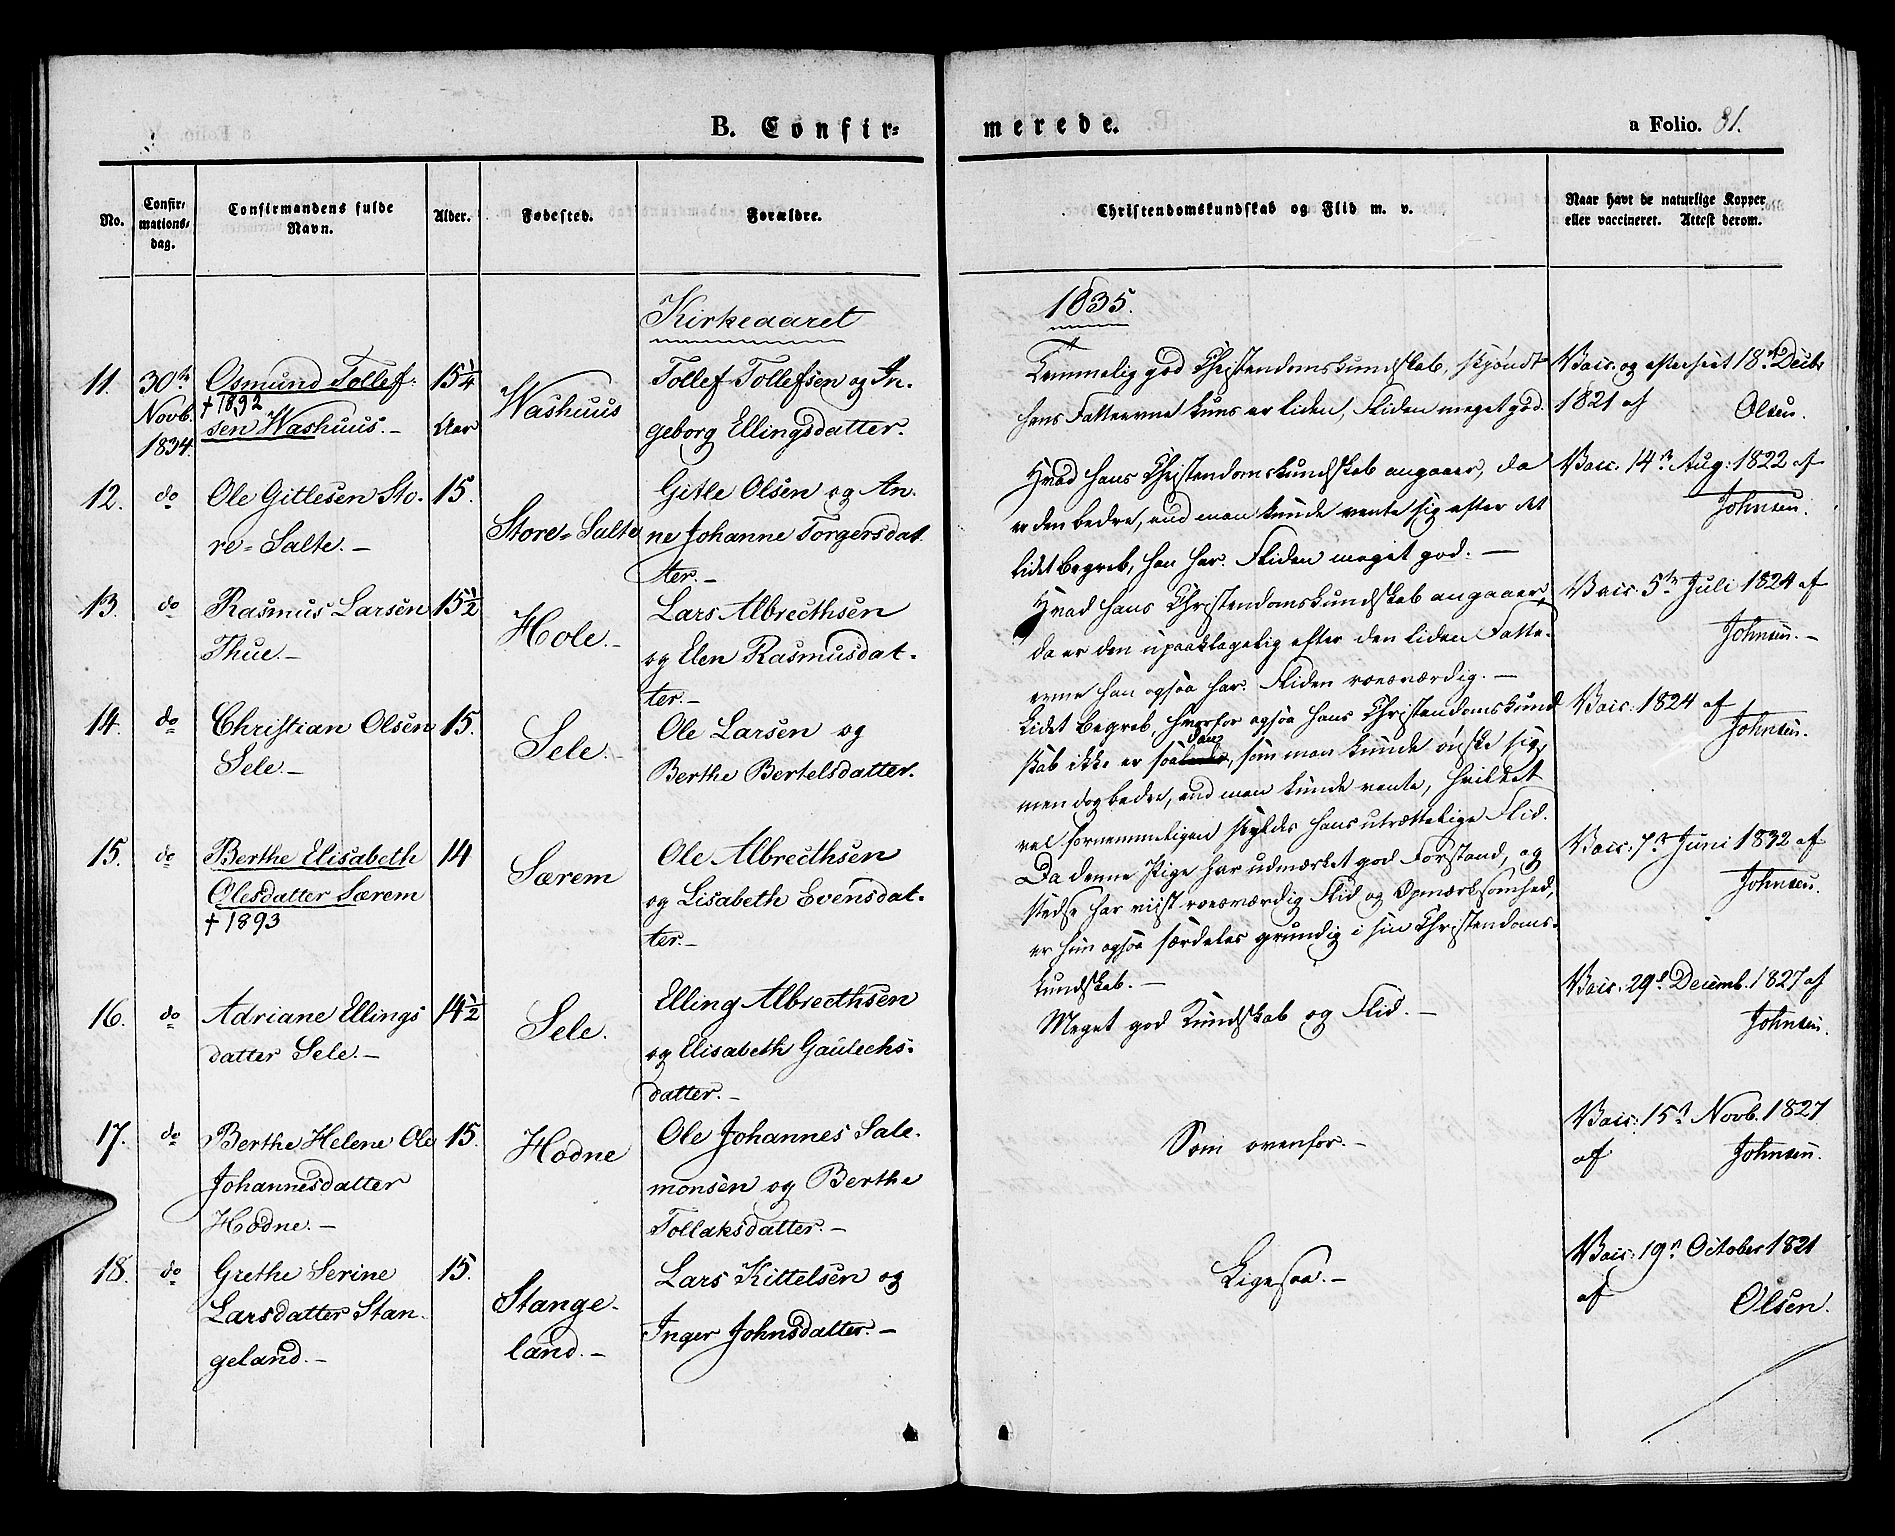 B. Confir=
merede.
a Folio. 81.
No.
Confir-
mations-
dag.
Confirmandens fulde
Navn.
Alder.
Fødested.
Forældre.
Christendomskundskab og Flid m. v.
Naar havt de naturlige Kopper
eller vaccineret. Attest derom.
Kirkeaaret
1835.
11.
30te
Novb.
1834.
Osmund Tollef-
† 1892
sen Washuus.-
15 1/4
Aar
Washuus
Tollef Tollefsen og In-
geborg Ellingsdatter.
Temmelig god Christendomskundskab, skjøndt
hans Fatteevne kuns er liden, Fliden meget god.
Vacc. og efterseet 18de Decbr
1821 af
Olsen.
12.
do
Ole Gitlesen Sto-
re=Salte.-
15.
Store=Salte
Gitle Olsen og An-
ne Johanne Torgersdat-
ter.-
Hvad hans Christendomskundskab angaaer, da
er den bedre, end man kunde vente sig efter det
lidet begreb, han har. Fliden meget god.-
Vacc. 14n Aug: 1822 af
Johnsen.
13.
do
Rasmus Larsen
Thue.-
15 1/2
Hole.-
Lars Albrecthsen
og Elen Rasmusdat-
ter.-
Hvad hans Christendomskundskab angaaer,
da er den upaaklagelig efter den liden Fatte-
evne han ogsaa har. Fliden roesværdig.-
Vacc. 5te Juli 1824 af
Johnsen.-
14.
do
Christian Olsen
Sele.-
15.
Sele.-
Ole Larsen og
Berthe Bertelsdatter.
Lidet begreb, hvorfor ogsaa hans Christendomskund
skab ikke er saadan, som man kunde ønske sig,
men dog bedre, end man kunde vente, hvilket
vel fornemmeligen skyldes hans utrættelige Flid.
Vacc. 1824 af
Johnsen.
15.
do
Berthe Elisabeth
Olesdatter Særem
† 1893
14
Særem
Ole Albrecthsen
og Lisabeth Evensdat-
ter.-
Da denne Pige har udmærket god Forstand, og
stedse har viist roesværdig Flid og Opmærksomhed,
er hun ogsaa særdeles grundig i sin Christendoms-
kundskab.-
Vacc. 7n Juni 1832 af
Johnsen.
16.
do
Adriane Ellings
datter Sele.-
14 1/2
Sele.
Elling Albrecthsen
og Elisabeth Gautechs-
datter.-
Meget god Kundskab og Flid.-
Vacc. 29d Decemb. 1827 af
Johnsen.
17.
do
Berthe Helene Ole
Johannesdatter
Hodne.-
15.
Hodne
Ole Johannes Sale-
monsen og Berthe
Tollaksdatter.-
Som ovenfor.-
Vacc. 15n Novb. 1827
af
Johnsen.
18.
do
Grethe Serine
Larsdatter Stan-
geland.-
15.
Stange-
land.-
Lars Kittelsen og
Inger Johnsdatter.-
Ligesaa.-
Vacc. 19n October 1821
af
Olsen.